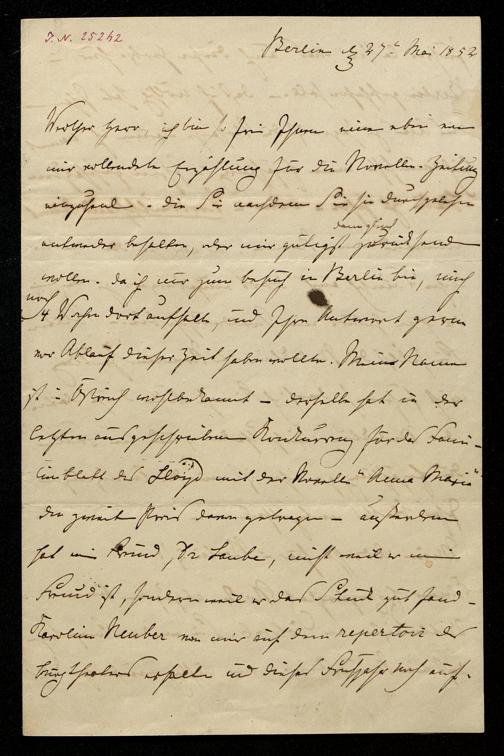 I. N. 25242
Berlin d 27t Mai 1852
Werther Herr, ich bin so frei Ihnen eine eben von
mir vollendete Erzählung für die Novellen-Zeitung
einzusend. die Sie nachdem Sie sie durchgelesen
entweder behalten, oder mir gütigst zurücksend
wollen. da ich nur zum besuch in Berlin bin, mich
noch
4 Wochen dort aufhalte, und Ihre Antwort gerne
vor Ablauf dieser Zeit haben wollte. Mein Name
ist in Östreich wohlbekannt – derselbe hat in der
letzten ausgeschriebenen Konkurrenz für das Fami-
lienblatt des Lloyd mit der Novelle "Anna Maria"
den zweiten Preis davon getragen – außerdem
hat mein Freund, Dr Laube, nicht weil er mein
Freund ist, sondern weil er das Stück gut fand –
Karoline Neuber von mir auf dem repertoir des
burgtheaters erhalten und dieses Frühjahr noch auf-